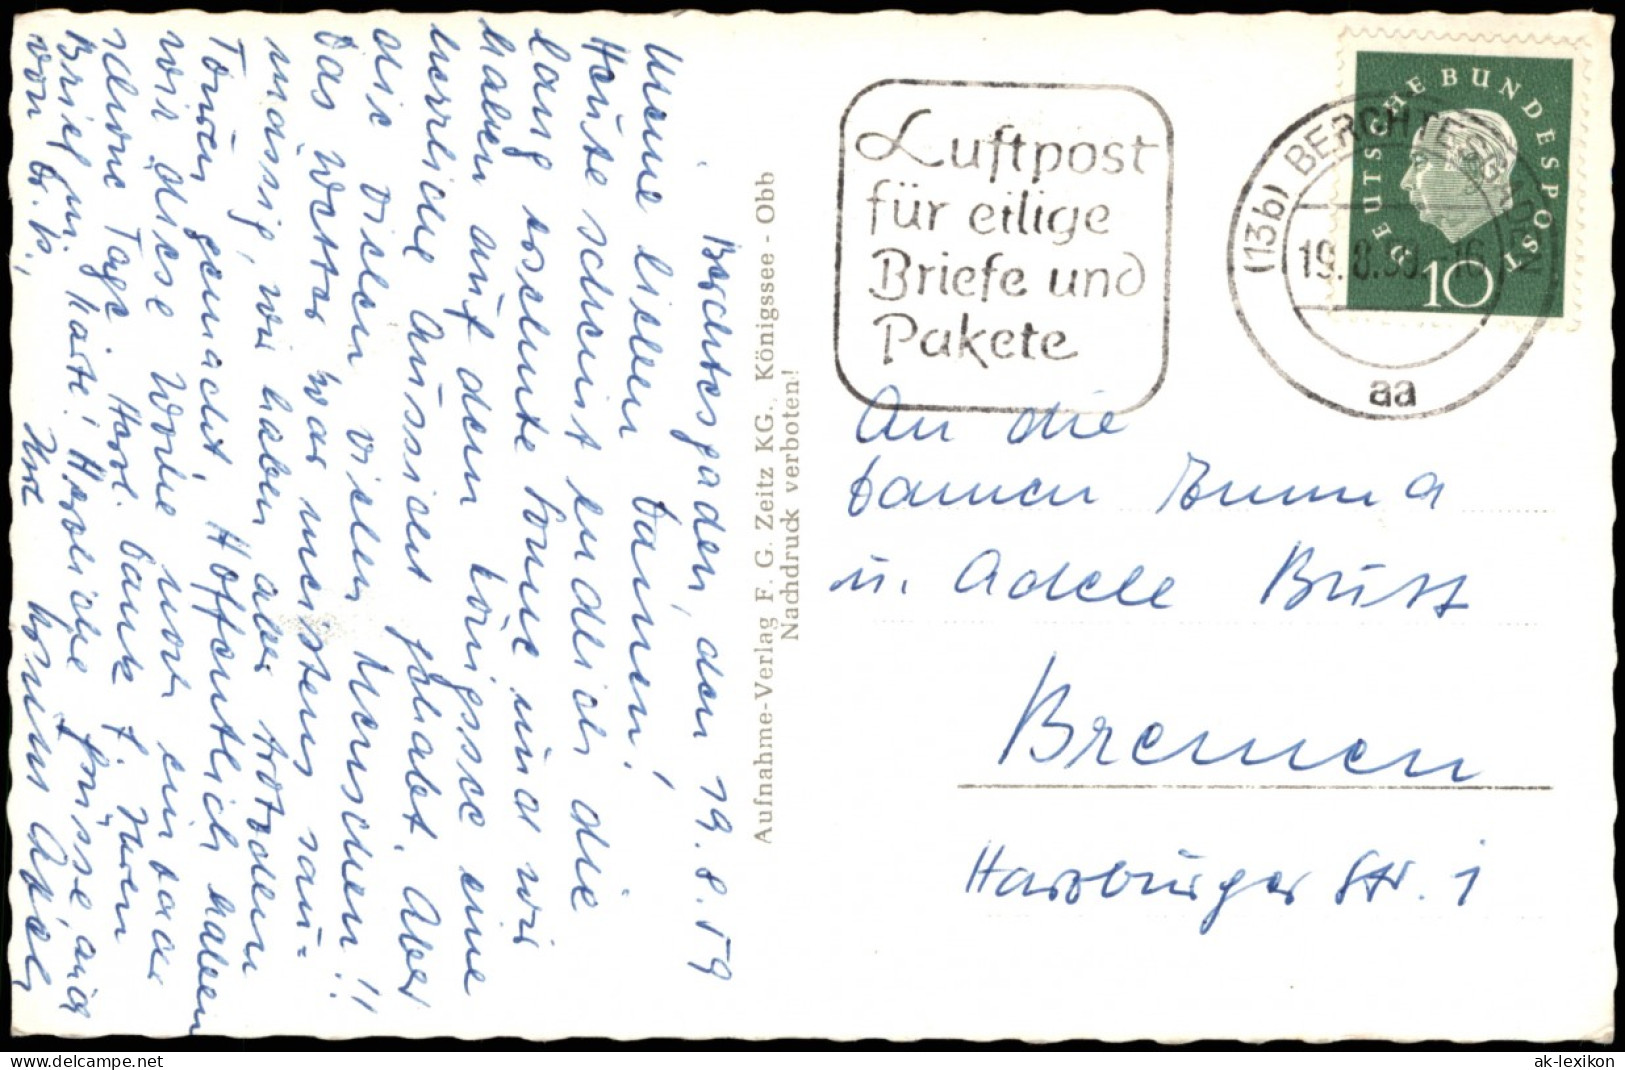 Berchtesgaden, den 19.8.59
Meine lieben Damen!
Heute scheint endlich die
lang ersehnte Sonne und wir
haben auf dem Königssee eine
herrliche Aussicht gehabt. Aber
die vielen vielen Menschen!!
Das Wetter war meistens sau-
mässig, wir haben aber trotzdem
Touren gemacht. Hoffentlich haben
wir diese Woche noch ein paar
schöne Tage. Herzl. Dank f. Ihren
Brief u. Karte! Herzliche Grüsse auch
von
Ihre
Aufnahme-Verlag F. G. Zeitz KG., Königssee - Obb
Nachdruck verboten!
Luftpost
für eilige
Briefe und
Pakete
(13b) BERCHTESGADEN
19.8.59.-16
aa
DEUTSCHE BUNDESPOST
10
An die
Damen Emma
u. Adele Butt
Bremen
Harzburger Str. 1
www.delcampe.net
ak-lexikon